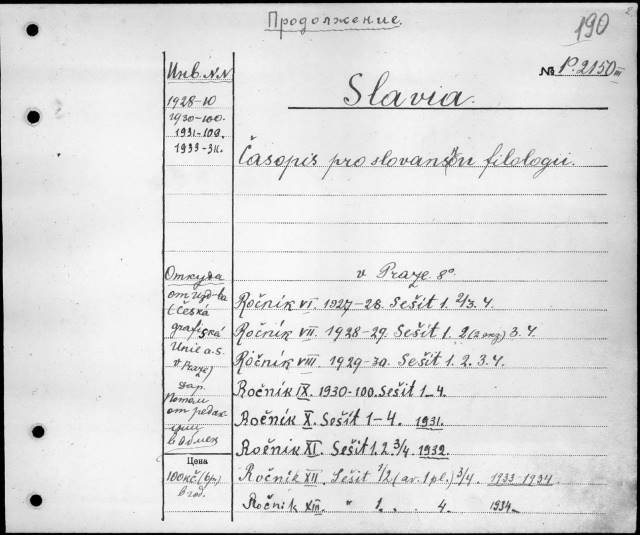 Продолжение.
190
Инв. N.N
№ P. 2150 III
1928-10
1930-100.
1931-100.
1933-311.
Slavia.
Časopis pro slovanskou filologii.
v Praze 8°
Откуда
от изд-ва
(Česká
grafiská
Unie a.s.
v Praze)
дар.
Потом
от редак-
ции
в обмен
Цена
100 Kč (бр.)
в год.
Ročník VI. 1927-28. Sešit 1. 2/3. 4.
Ročník VII. 1928-29. Sešit 1. 2 (2 экз) 3. 4.
Ročník VIII. 1929-30. Sešit 1. 2. 3. 4.
Ročník IX. 1930-100. Sešit 1-4.
Ročník X. Sešit 1-4. 1931.
Ročník XI. Sešit 1. 2. 3/4. 1932.
Ročník XII. Sešit 1/2 (ar. 1 pl.) 3/4. 1933-1934.
Ročník XIII. " 1. . . 4. 1934-